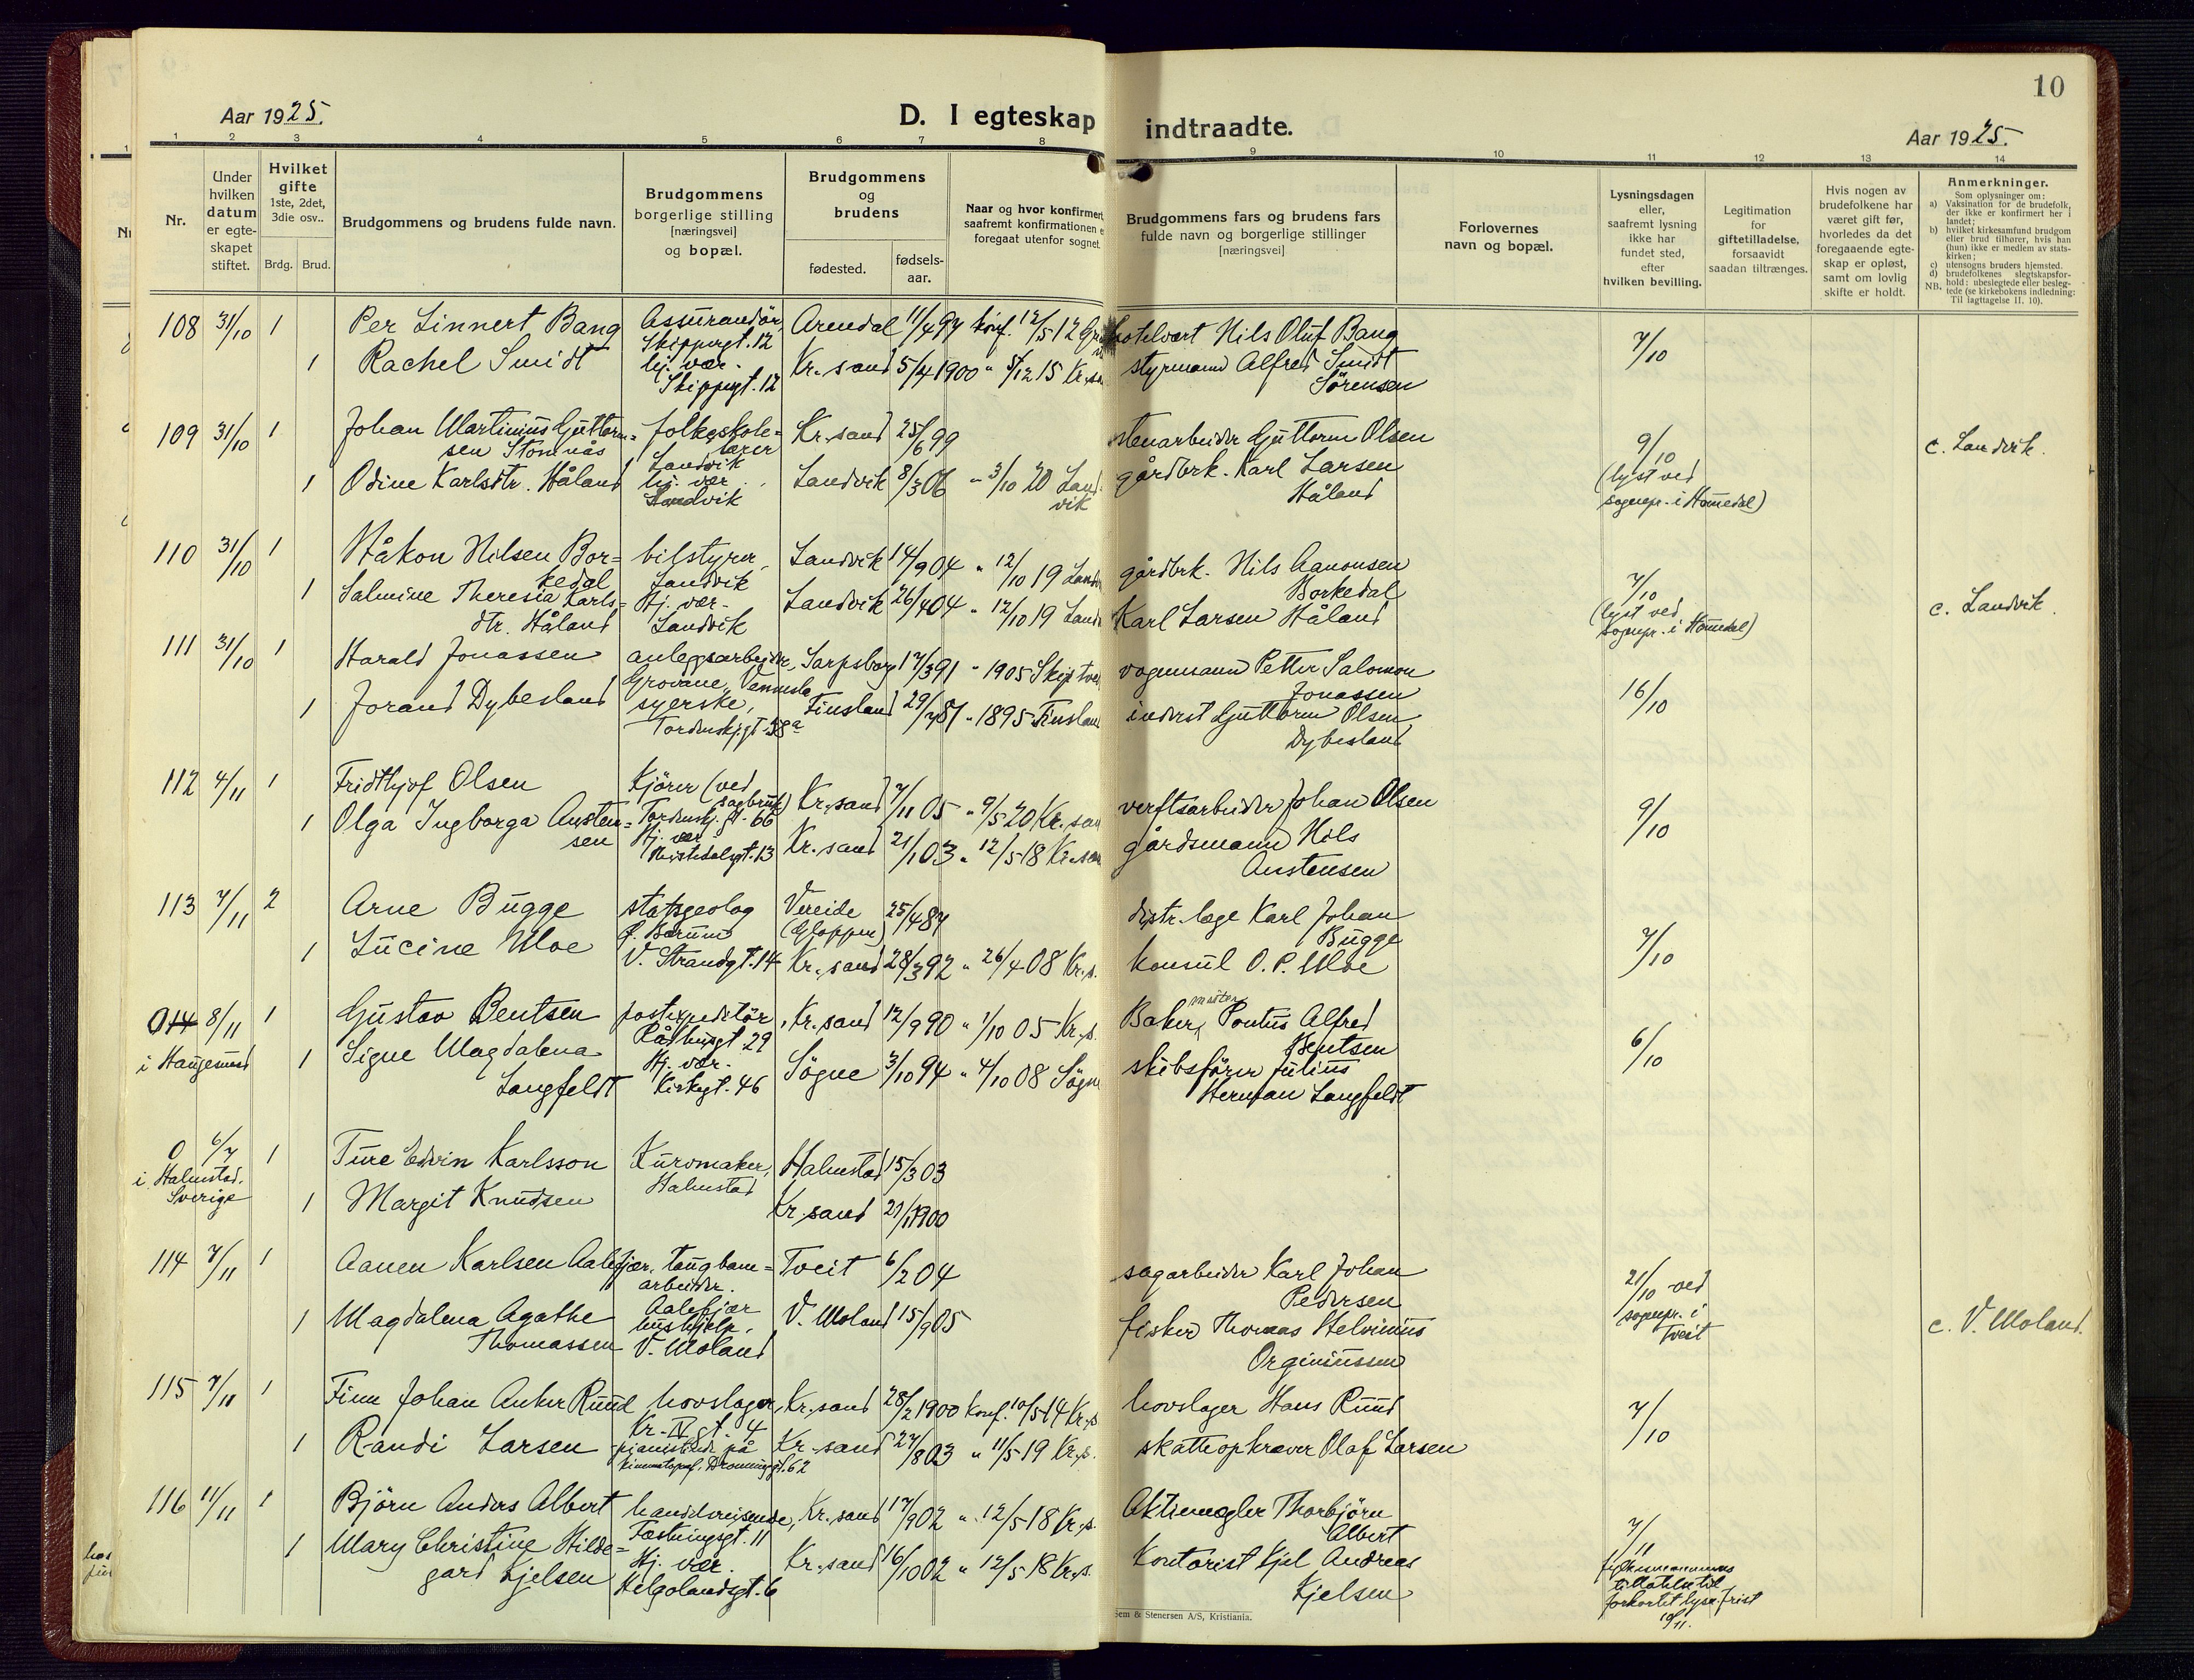 10
Aar 1925.
D. I egteskap indtraadte.
Aar 1925.
1 2 3 4 5 6 7 8 9 10 11 12 13 14
Nr.
Under hvilken datum er egteskapet stiftet.
Hvilket gifte 1ste, 2det, 3die osv..
Brdg. Brud.
Brudgommens og brudens fulde navn.
Brudgommens borgerlige stilling [næringsvei] og bopæl.
Brudgommens og brudens
fødested.
fødsels-aar.
Naar og hvor konfirmert
saafremt konfirmationen e
foregaat utenfor sognet.
Brudgommens fars og brudens fars
fulde navn og borgerlige stillinger
[næringsvei]
Forlovernes
navn og bopæl.
Lysningsdagen
eller,
saafremt lysning
ikke har
fundet sted,
efter
hvilken bevilling.
Legitimation
for
giftetilladelse,
forsaavidt
saadan tiltrænges.
Hvis nogen av
brudefolkene har
været gift før,
hvorledes da det
foregaaende egte-
skap er opløst,
samt om lovlig
skifte er holdt.
Anmerkninger.
Som oplysninger om:
a) Vaksination for de brudefolk,
der ikke er konfirmert her i
landet;
b) hvilket kirkesamfund brudgom
eller brud tilhører, hvis han
(hun) ikke er medlem av stats-
kirken;
c) utensogns bruders hjemsted.
d) brudefolkenes slegtskapsfor-
hold: ubeslegtede eller besleg-
NB. tede (se kirkebokens indledning:
Til iagttagelse II. 10).
108 31/10 1 Per Linnert Bang Assurandör, Skippergt. 12 Arendal 11/4 97 konf. 12/5 12 hotelvært Nils Oluf Bang 7/10
1 Rachel Smidt hj. vær. Skippergt. 12 Kr.sand 5/4 1900 " 5/12 15 Kr.sa styrmann Alfred Smidt Sörensen
109 31/10 1 Johan Martinius Guttorm=sen Stomnås folkeskole=lærer Landvik Kr.sand 25/6 99 stenarbeider Guttorm Olsen 9/10 (lyst ved sognepr. i Hommedal) c. Landvik.
1 Odine Karlsdtr. Håland hj. vær. Landvik Landvik 8/3 06 " 3/10 20 Landvik gårdbrk. Karl Larsen Håland
110 31/10 1 Håkon Nilsen Bor=kedal bilstyrer, Landvik Landvik 14/9 04 " 12/10 19 Land gårdbrk. Nils Aanonsen Borkedal 7/10 (lyst ved sognepr. i Hommedal) c. Landvik.
1 Salmine Theresia Karls=dtr. Håland Hj. vær. Landvik Landvik 26/4 04 " 12/10 19 Land Karl Larsen Håland
111 31/10 1 Harald Jonassen anlegsarbeider, Grovane, Vennesla Sarpsborg 17/3 91 " 1905 Skiptve vognmann Petter Salomon Jonassen 16/10
1 Jorand Dybesland syerske, Tordenskj.gt. 38a Finsland 29/7 81 " 1895 Finslan inderst Guttorm Olsen Dybesland
112 4/11 1 Fridthjof Olsen Kjörer (ved sagbruk) Tordenskj. gt. 66 Kr.sand 7/11 05 " 9/5 20 Kr.san verftsarbeider Johan Olsen 9/10
1 Olga Ingborga Austen=sen Hj. vær. 13 Kr.sand 21/1 03 " 12/5 18 Kr.san gårdsmann Nils Austensen
113 7/11 2 Arne Bugge statsgeolog Ö. Bærum Vereide (Gloppen) 25/4 87 distr. læge Karl Johan Bugge 7/10
1 Lucine Moe V. Strandgt. 14 Kr.sand 28/3 92 " 26/4 08 Kr.s. konsul O. P. Moe
0 114 8/11 1 Gustav Bentsen postexpeditör, Rådhusgt. 29 Kr.sand 12/9 90 " 1/10 05 Kr.s. Bakermester Pontus Alfred Bentsen 6/10
i Haugesund 1 Signe Magdalena Langfeldt Hj. vær. Kirkegt. 46 Sögne 3/10 94 " 4/10 08 Sögn skibsförer Julius Herman Langfeldt
0 6/7 1 Ture Edvin Karlsson Kurvmaker, Halmstad Halmstad 15/3 03
i Halmstad, Sverige 1 Margit Knudsen Kr.sand 21/1 1900
114 7/11 1 Aanen Karlsen Aalefjær. taugbane=arbeider. Aalefjær Tveit 6/2 04 sagarbeider Karl Johan Pedersen 21/10 ved sognepr. i Tveit c. V. Moland.
1 Magdalena Agathe Thomassen hushjelp, V. Moland V. Moland 15/9 05 fisker Thomas Helvinius Orginiussen
115 7/11 1 Finn Johan Anker Ruud hovslager, Kr. IV gt. 4 Kr.sand 28/2 1900 konf. 10/5 14 Kr.s hovslager Hans Ruud 7/10
1 Randi Larsen pianistinde på kinematograf. Dronningsgt. 62 Kr.sand 27/8 03 " 11/5 19 Kr.s. skatteopkræver Olaf Larsen
116 11/11 1 Björn Anders Albert handelsreisende, Festningsgt. 11 Kr.sand 17/9 02 " 12/5 18 Kr.s. Aktiemægler Thorbjörn Albert 7/11 fylkesmannens tillatelse til forkortet lysn.frist 10/11.
1 Mary Christine Hilde=gard Kjelsen Hj. vær. Helgolandsgt. 6 Kr.sand 16/10 02 " 12/5 18 Kr.s. Kontorist Kjel Andreas Kjelsen
Sem & Stenersen A/S, Kristiania.